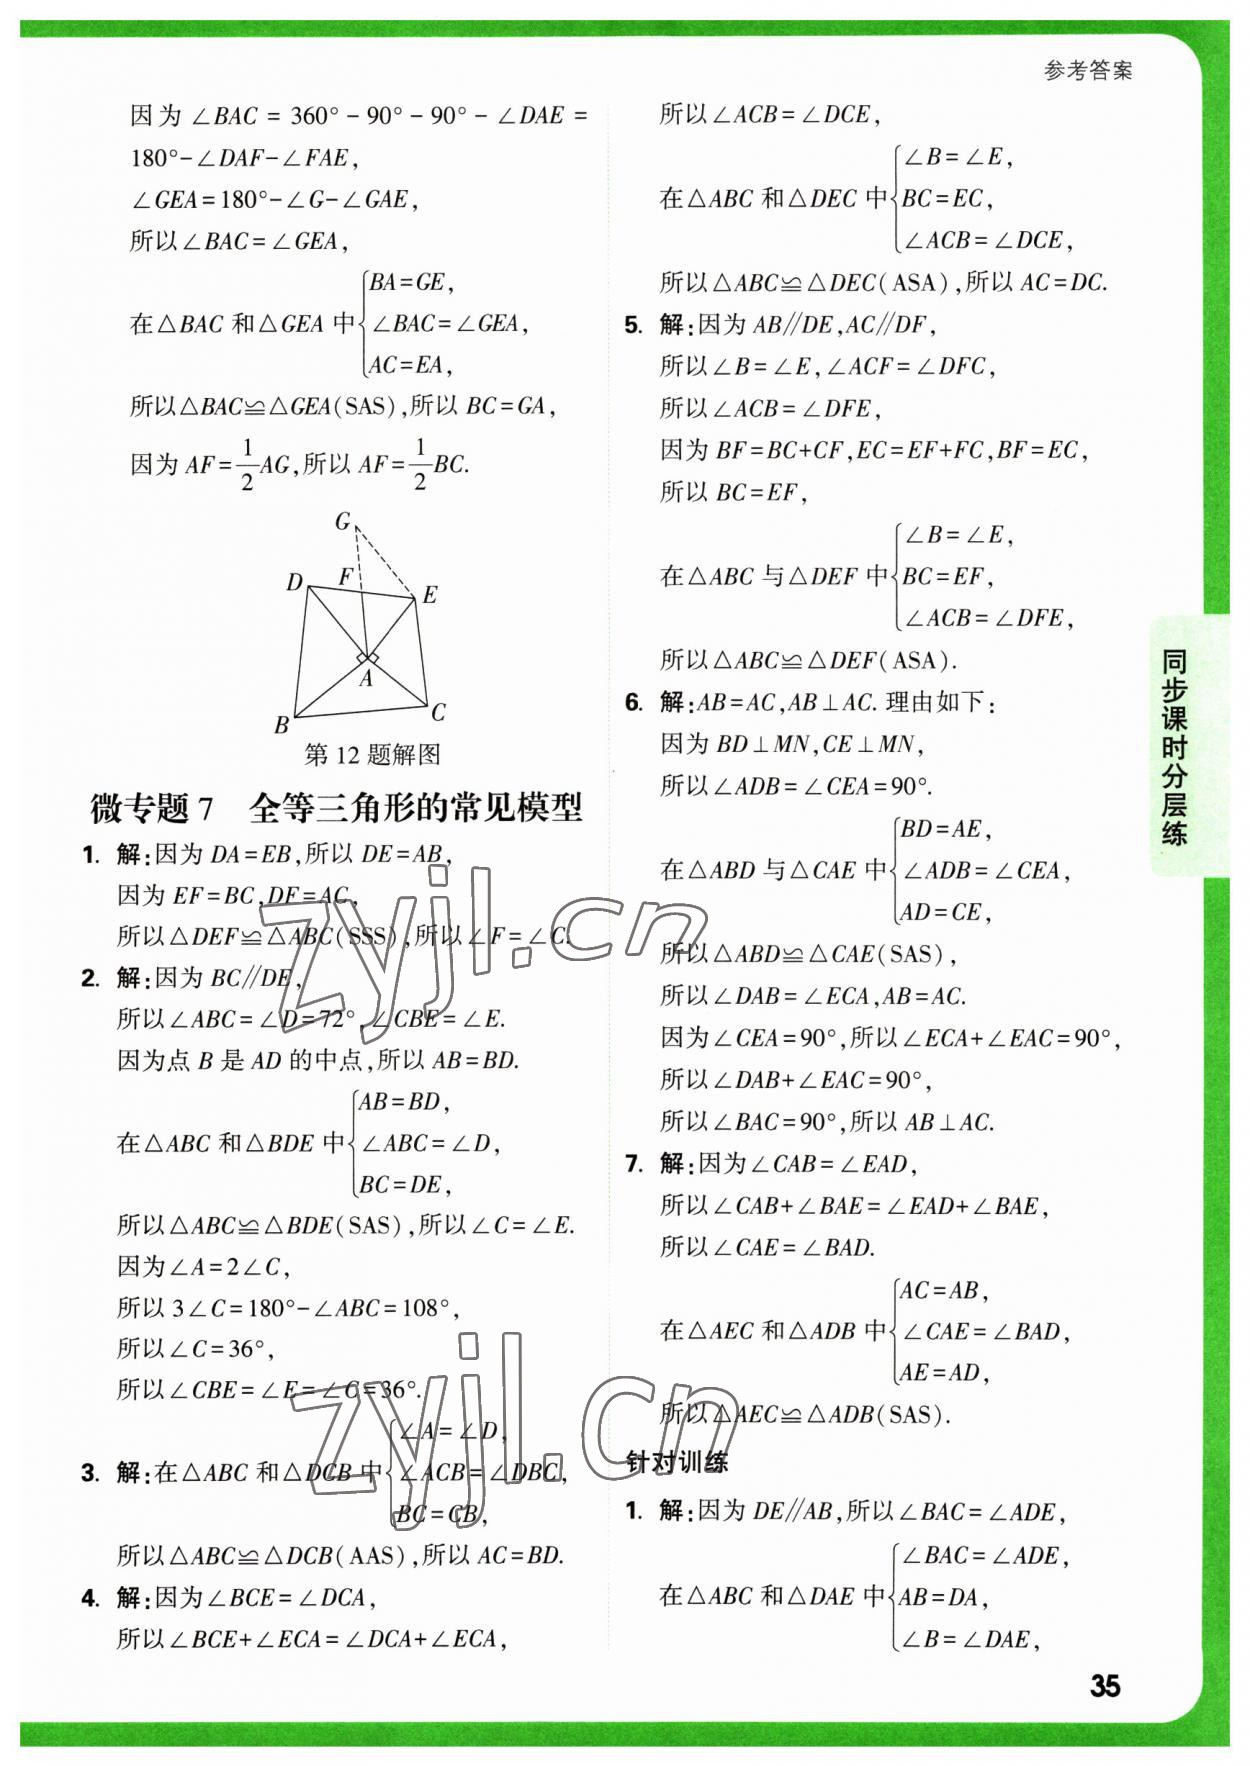 参考答案
因为∠BAC = 360° - 90° - 90° - ∠DAE =
180°-∠DAF-∠FAE,
∠GEA=180°-∠G-∠GAE,
所以∠BAC=∠GEA,
BA=GE,
在△BAC 和△GEA 中 ∠BAC=∠GEA,
AC=EA,
所以△BAC≌△GEA(SAS),所以 BC=GA,
因为 AF=1/2AG,所以 AF=1/2BC.
G
D
F
E
A
B
C
第 12 题解图
微专题 7 全等三角形的常见模型
1. 解:因为 DA=EB,所以 DE=AB,
因为 EF=BC,DF=AC,
所以△DEF≌△ABC(SSS),所以∠F=∠C.
2. 解:因为 BC∥DE,
所以∠ABC=∠D=72°,∠CBE=∠E.
因为点 B 是 AD 的中点,所以 AB=BD.
AB=BD,
在△ABC 和△BDE 中 ∠ABC=∠D,
BC=DE,
所以△ABC≌△BDE(SAS),所以∠C=∠E.
因为∠A=2∠C,
所以 3∠C=180°-∠ABC=108°,
所以∠C=36°,
所以∠CBE=∠E=∠C=36°.
∠A=∠D,
3. 解:在△ABC 和△DCB 中 ∠ACB=∠DBC,
BC=CB,
所以△ABC≌△DCB(AAS),所以 AC=BD.
4. 解:因为∠BCE=∠DCA,
所以∠BCE+∠ECA=∠DCA+∠ECA,
所以∠ACB=∠DCE,
∠B=∠E,
在△ABC 和△DEC 中 BC=EC,
∠ACB=∠DCE,
所以△ABC≌△DEC(ASA),所以 AC=DC.
5. 解:因为 AB∥DE,AC∥DF,
所以∠B=∠E,∠ACF=∠DFC,
所以∠ACB=∠DFE,
因为 BF=BC+CF,EC=EF+FC,BF=EC,
所以 BC=EF,
∠B=∠E,
在△ABC 与△DEF 中 BC=EF,
∠ACB=∠DFE,
所以△ABC≌△DEF(ASA).
6. 解:AB=AC,AB⊥AC. 理由如下:
因为 BD⊥MN,CE⊥MN,
所以∠ADB=∠CEA=90°.
BD=AE,
在△ABD 与△CAE 中 ∠ADB=∠CEA,
AD=CE,
所以△ABD≌△CAE(SAS),
所以∠DAB=∠ECA,AB=AC.
因为∠CEA=90°,所以∠ECA+∠EAC=90°,
所以∠DAB+∠EAC=90°,
所以∠BAC=90°,所以 AB⊥AC.
7. 解:因为∠CAB=∠EAD,
所以∠CAB+∠BAE=∠EAD+∠BAE,
所以∠CAE=∠BAD.
AC=AB,
在△AEC 和△ADB 中 ∠CAE=∠BAD,
AE=AD,
所以△AEC≌△ADB(SAS).
针对训练
1. 解:因为 DE∥AB,所以∠BAC=∠ADE,
∠BAC=∠ADE,
在△ABC 和△DAE 中 AB=DA,
∠B=∠DAE,
同步课时分层练
35
zyjl.cn
zyjl.cn